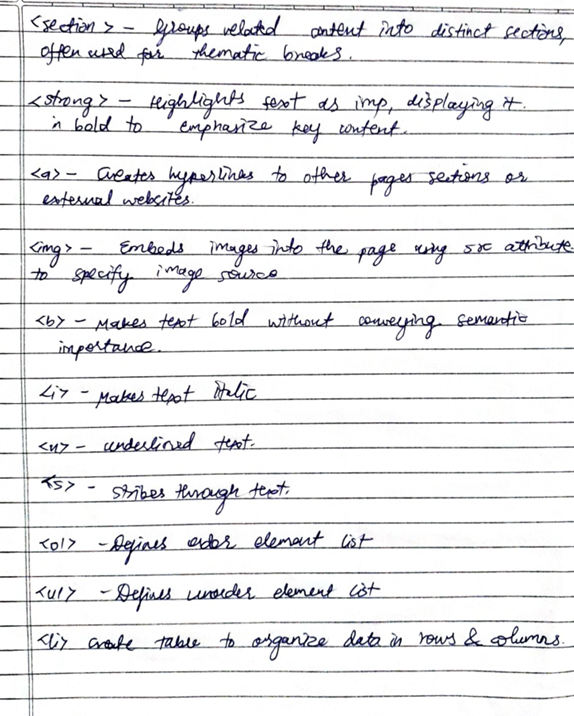 <section> - Groups related content into distinct sections,
often used for thematic breaks.
<strong> - Highlights text as imp, displaying it
in bold to emphasize key content.
<a> - Creates hyperlinks to other pages sections or
external websites.
<img> - Embeds images into the page using src attribute
to specify image source
<b> - Makes text bold without conveying semantic
importance.
<i> - Makes text italic
<u> - underlined text.
<s> - stribes through text.
<ol> - Defines order element list
<ul> - Defines unorder element list
<li> create table to organize data in rows & columns.